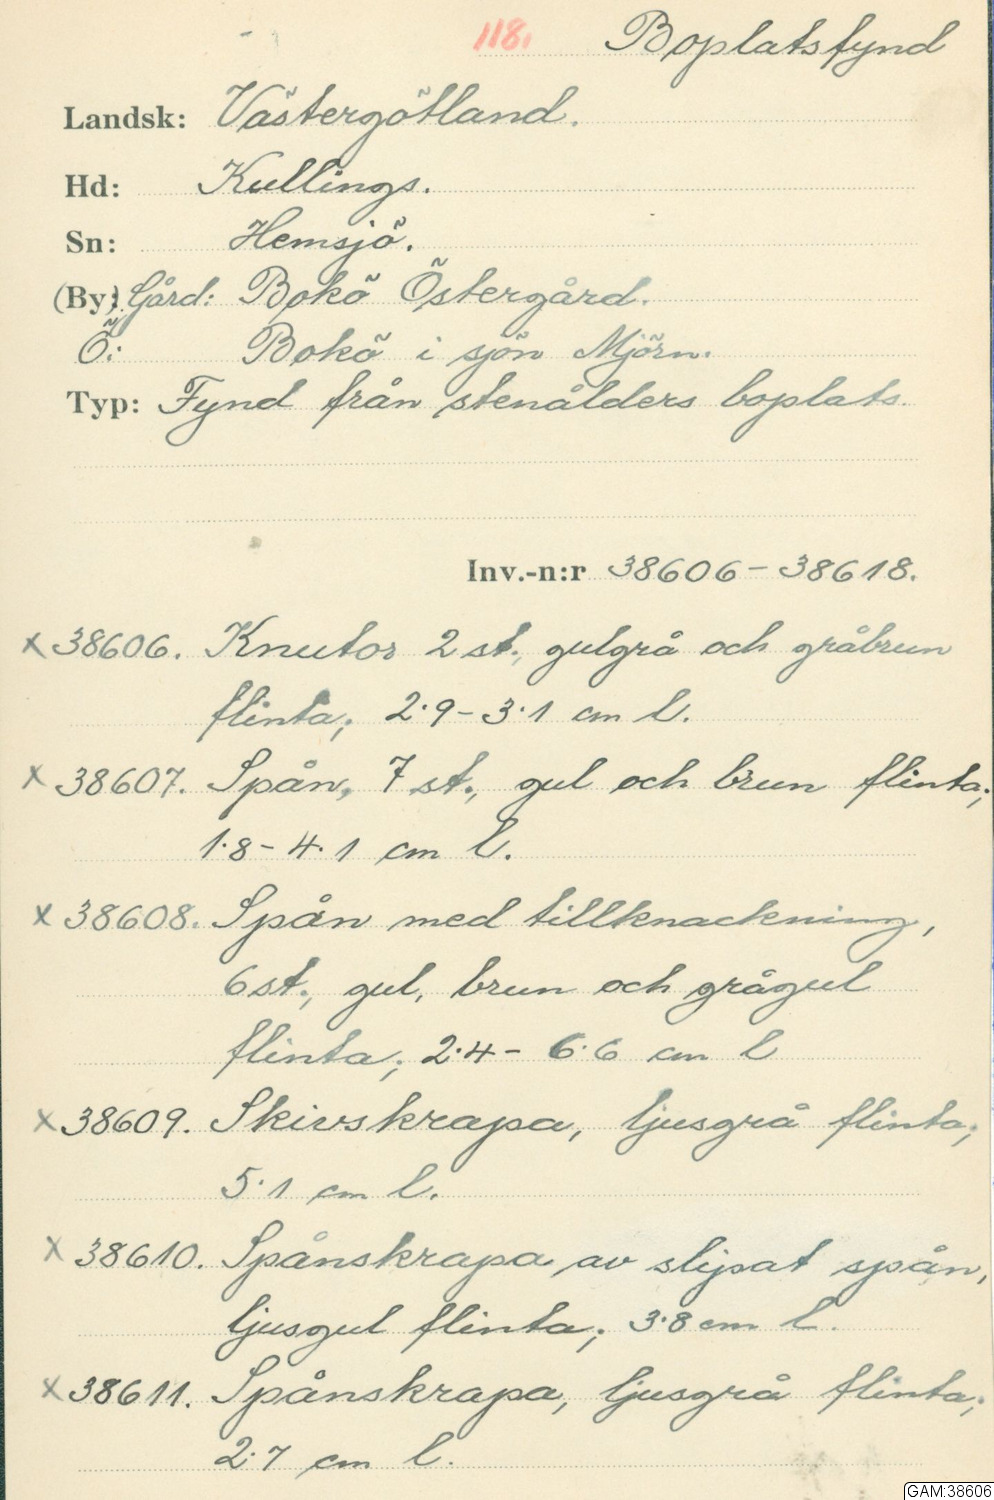 118. Boplatsfynd
Landsk: Västergötland.
Hd: Kullings.
Sn: Hemsjö.
(By): Gård: Bokö Östergård.
Ö: Bokö i sjön Mjörn.
Typ: Fynd från stenålders boplats.
Inv.-n:r 38606-38618.
x 38606. Knutor 2 st., gulgrå och gråbrun
flinta; 2.9-3.1 cm l.
x 38607. Spån, 7 st., gul och brun flinta;
1.8-4.1 cm l.
x 38608. Spån med tillknackning,
6 st., gul, brun och grågul
flinta; 2.4-6.6 cm l
x 38609. Skivskrapa, ljusgrå flinta;
5.1 cm l.
x 38610. Spånskrapa av slipat spån,
ljusgul flinta; 3.8 cm l.
x 38611. Spånskrapa, ljusgrå flinta;
2.7 cm l.
GAM:38606